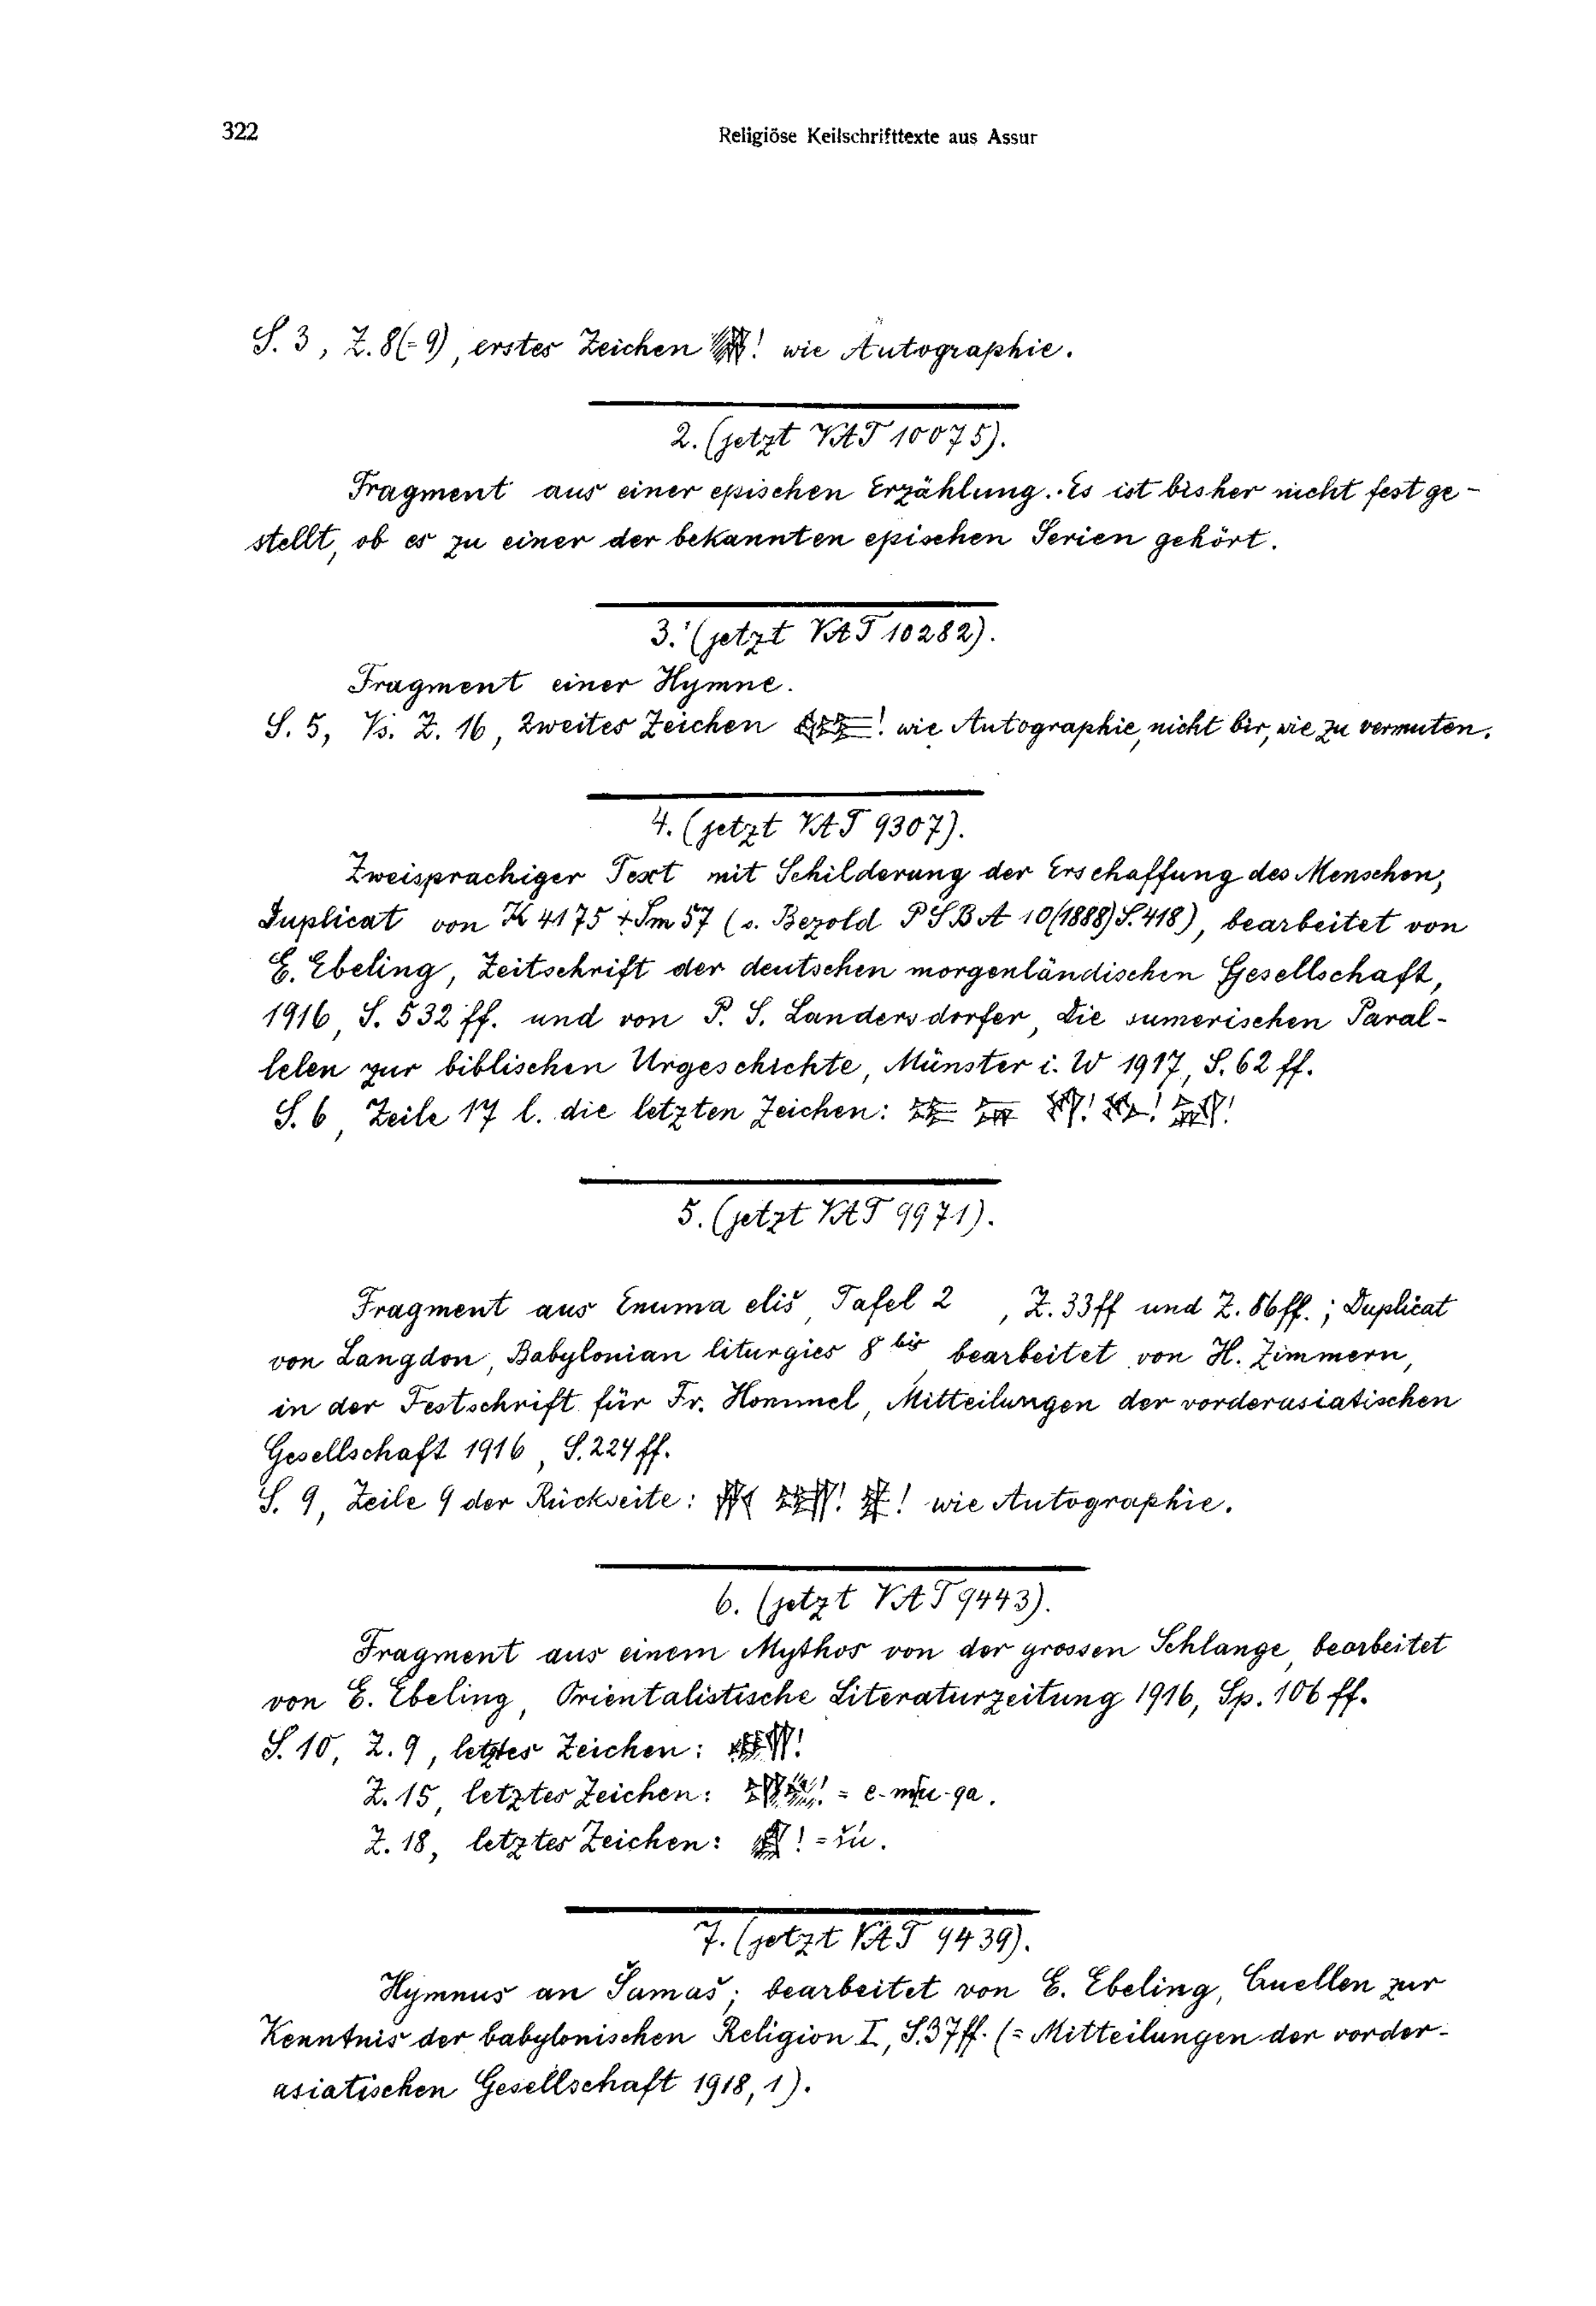 322
Religiöse Keilschrifttexte aus Assur
S. 3, Z. 8(=9), erstes Zeichen ! wie Autographie.
2. (jetzt VAT 10075).
Fragment aus einer epischen Erzählung. Es ist bisher nicht festge-
stellt, ob es zu einer der bekannten epischen Serien gehört.
3. (jetzt VAT 10282).
Fragment einer Hymne.
S. 5, Vs. Z. 16, zweites Zeichen ! wie Autographie, nicht bir, wie zu vermuten.
4. (jetzt VAT 9307).
Zweisprachiger Text mit Schilderung der Erschaffung des Menschen,
Duplicat von K 4175 + Sm 57 (s. Bezold PSBA 10(1888) S. 418), bearbeitet von
E. Ebeling, Zeitschrift der deutschen morgenländischen Gesellschaft,
1916, S. 532 ff. und von P. S. Landersdorfer, Die sumerischen Paral-
lelen zur biblischen Urgeschichte, Münster i. W 1917, S. 62 ff.
S. 6, Zeile 17 l. die letzten Zeichen: ! ! !
5. (jetzt VAT 9971).
Fragment aus Enuma eliš, Tafel 2 , Z. 33ff und Z. 86ff.; Duplicat
von Langdon, Babylonian liturgies 8 bis bearbeitet von H. Zimmern,
in der Festschrift für Fr. Hommel, Mitteilungen der vorderasiatischen
Gesellschaft 1916, S. 224 ff.
S. 9, Zeile 9 der Rückseite: ! ! wie Autographie.
6. (jetzt VAT 9443).
Fragment aus einem Mythos von der grossen Schlange, bearbeitet
von E. Ebeling, Orientalistische Literaturzeitung 1916, Sp. 106 ff.
S. 10, Z. 9, letztes Zeichen: !
Z. 15, letztes Zeichen: ! = e-mu-qa.
Z. 18, letztes Zeichen: ! = šú.
7. (jetzt VAT 9439).
Hymnus an Šamaš; bearbeitet von E. Ebeling, Quellen zur
Kenntnis der babylonischen Religion I, S. 37ff. (= Mitteilungen der vorder-
asiatischen Gesellschaft 1918, 1).